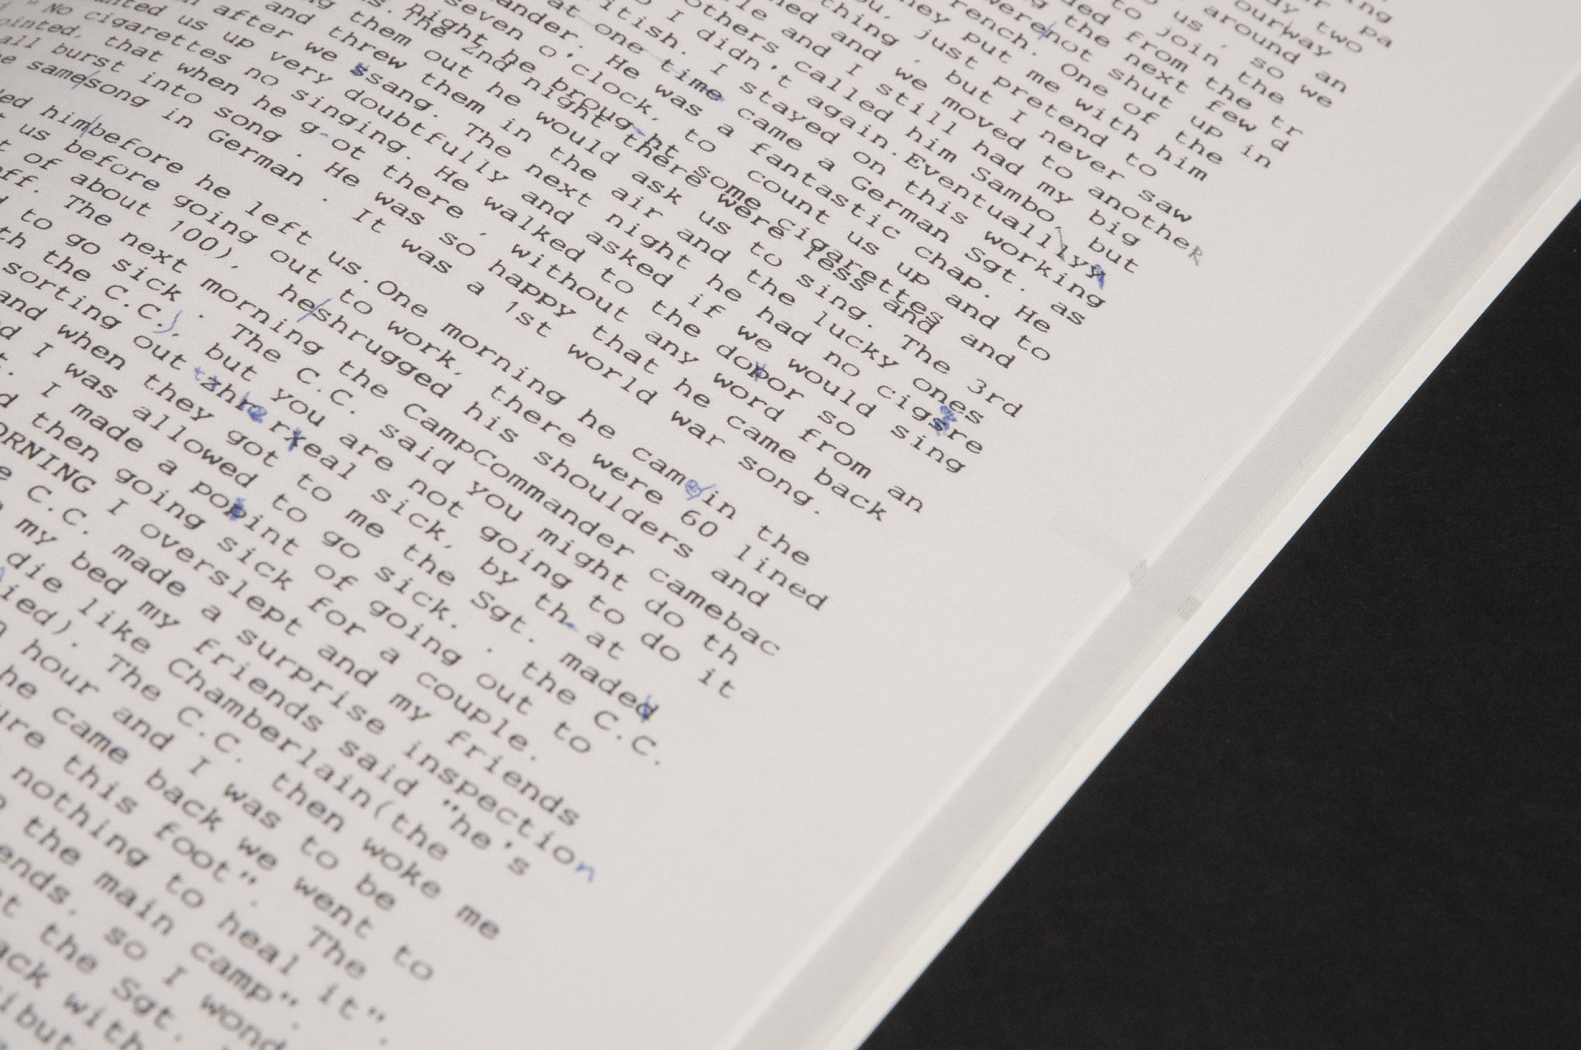 pa
two
our way
around an
to us , so we
to join the
from the tr
the next few d
were not shut up in
One of the
put me with him
just pretend to
, but I never saw
and we moved to anotheR
and I still had my big
others called him Sambo, but
I didn't again.Eventually
I stayed on this working
at one time came a German Sgt. as
He was a fantastic chap. He
seven o'clock, to count us up and to
night he broug-ht some cigarettes and
The 2nd night there were less cigarettes
and threw them in the air and the lucky ones
them out he would ask us to sing. The 3rd
after we ssang. The next night he had no cigsre
us up very doubtfully and asked if we would sing
" No cigarettes no singing. He walked to the dopor so
that when he g-ot there , without any word from an
all burst into song . He was so happy that he came back
samesong in German . It was a 1st world war song.
himbefore he left us.One morning he came in the
us before going out to work, there were 60 lined
of about 100), heshrugged his shoulders and
off. The next morning the CampCommander camebac
to go sick . The C.C. said you might do th
the C.C.), but you are not going to do it
sorting out tzhe rxeal sick, by th-at
and when they got to me the Sgt. maded
I was allowed to go sick. . the C.C.
I made a popint of going out to
then going sick for a couple.
ORNING I overslept and my friends
C.C. made a surprise inspection
my bed my friends said "he's
die like Chamberlain(the
ied). The C.C. then woke me
hour and I was to be
he came back we went to
this foot". The
nothing to heal it".
the main camp".
ends, so I wond
the Sgt.
ack with
ibut